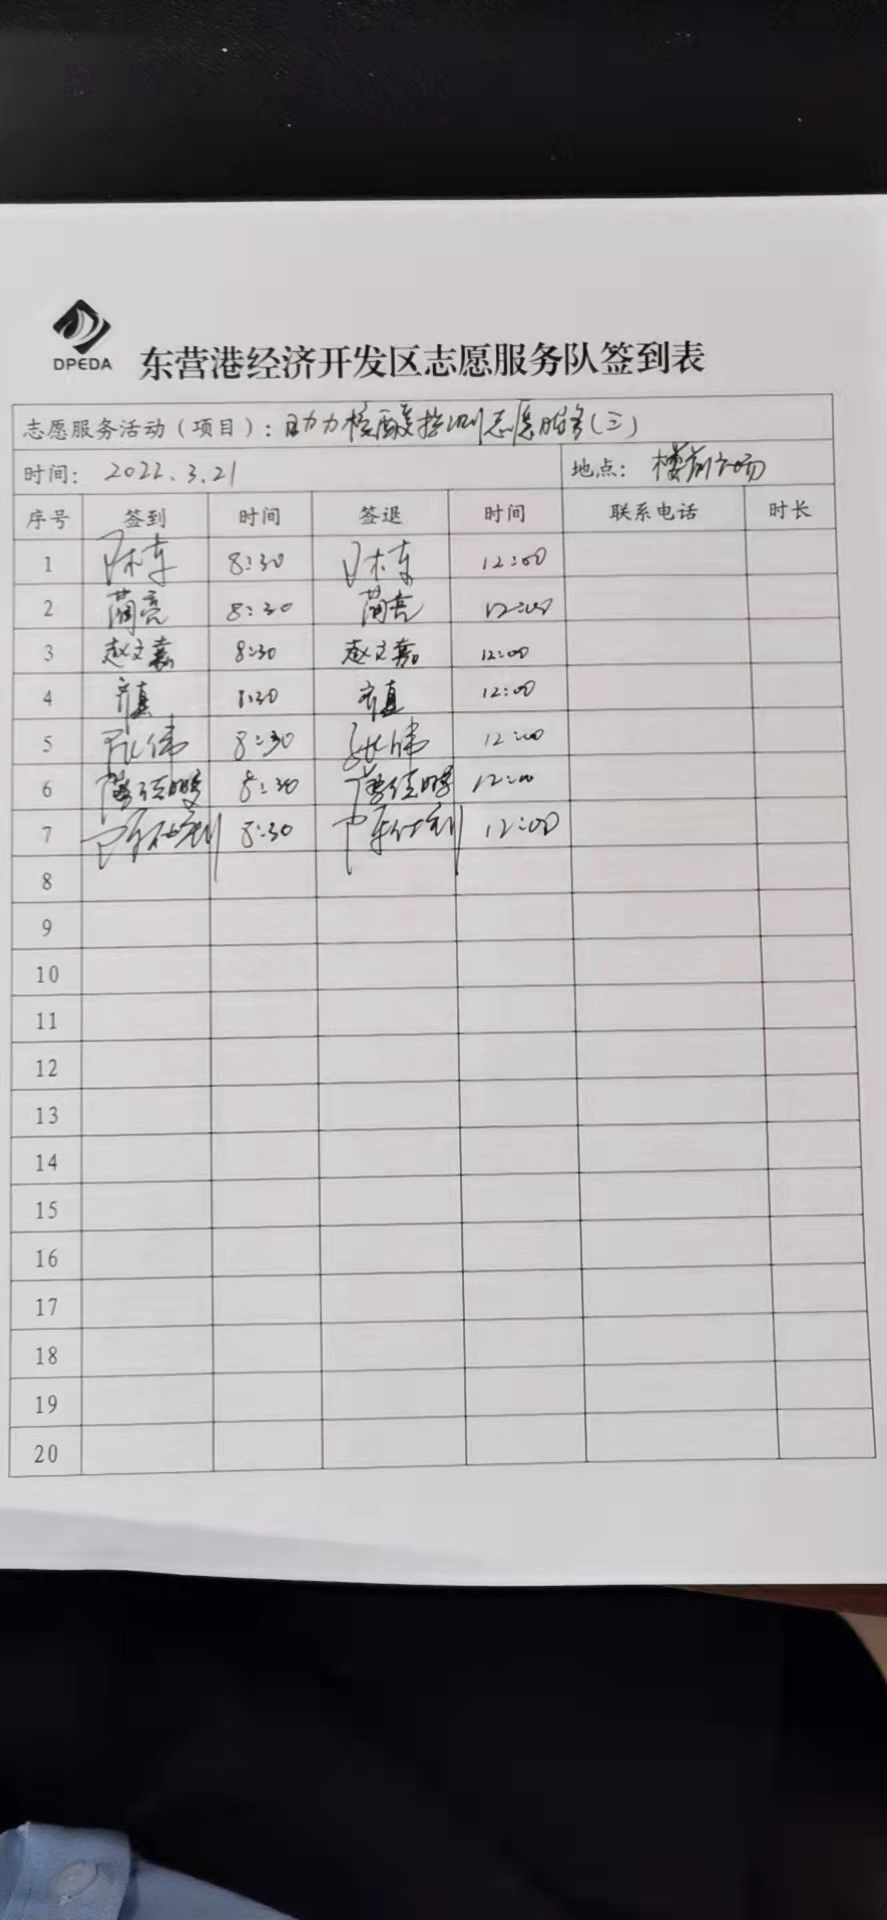 DPEDA
东营港经济开发区志愿服务队签到表
志愿服务活动（项目）：助力核酸检测志愿服务（三）
时间： 2022.3.21 地点： 楼前广场
序号 签到 时间 签退 时间 联系电话 时长
1 8:30 12:00
2 蔺亮 8:30 蔺亮 12:00
3 赵文嘉 8:30 赵文嘉 12:00
4 齐真 8:30 齐真 12:00
5 张伟 8:30 张伟 12:00
6 8:30 12:00
7 8:30 12:00
8
9
10
11
12
13
14
15
16
17
18
19
20